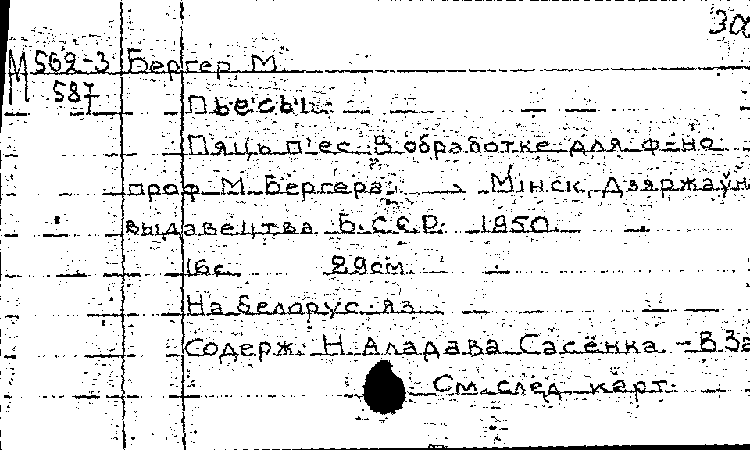 М 562-3 Бергер М.
587
Пьесы.
Пяць п'ес. В обработке для ф-но
проф. М. Бергера. Мінск, Дзяржаўн
выдавецтва Б.С.С.Р. 1950.
16с. 29см.
На белорус. яз.
Содерж: Н. Аладава Сасёнка. - В. За
См. след. карт.